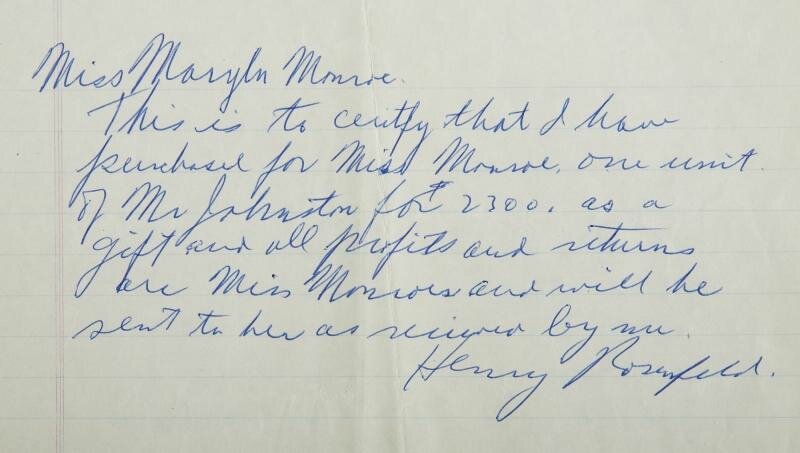 Miss Maryln Monroe.
This is to certify that I have
purchased for Miss Monroe, one unit
of Mr Johnston for $2300. as a
gift and all profits and returns
are Miss Monroes and will be
sent to her as recieved by me.
Henry Rosenfeld.